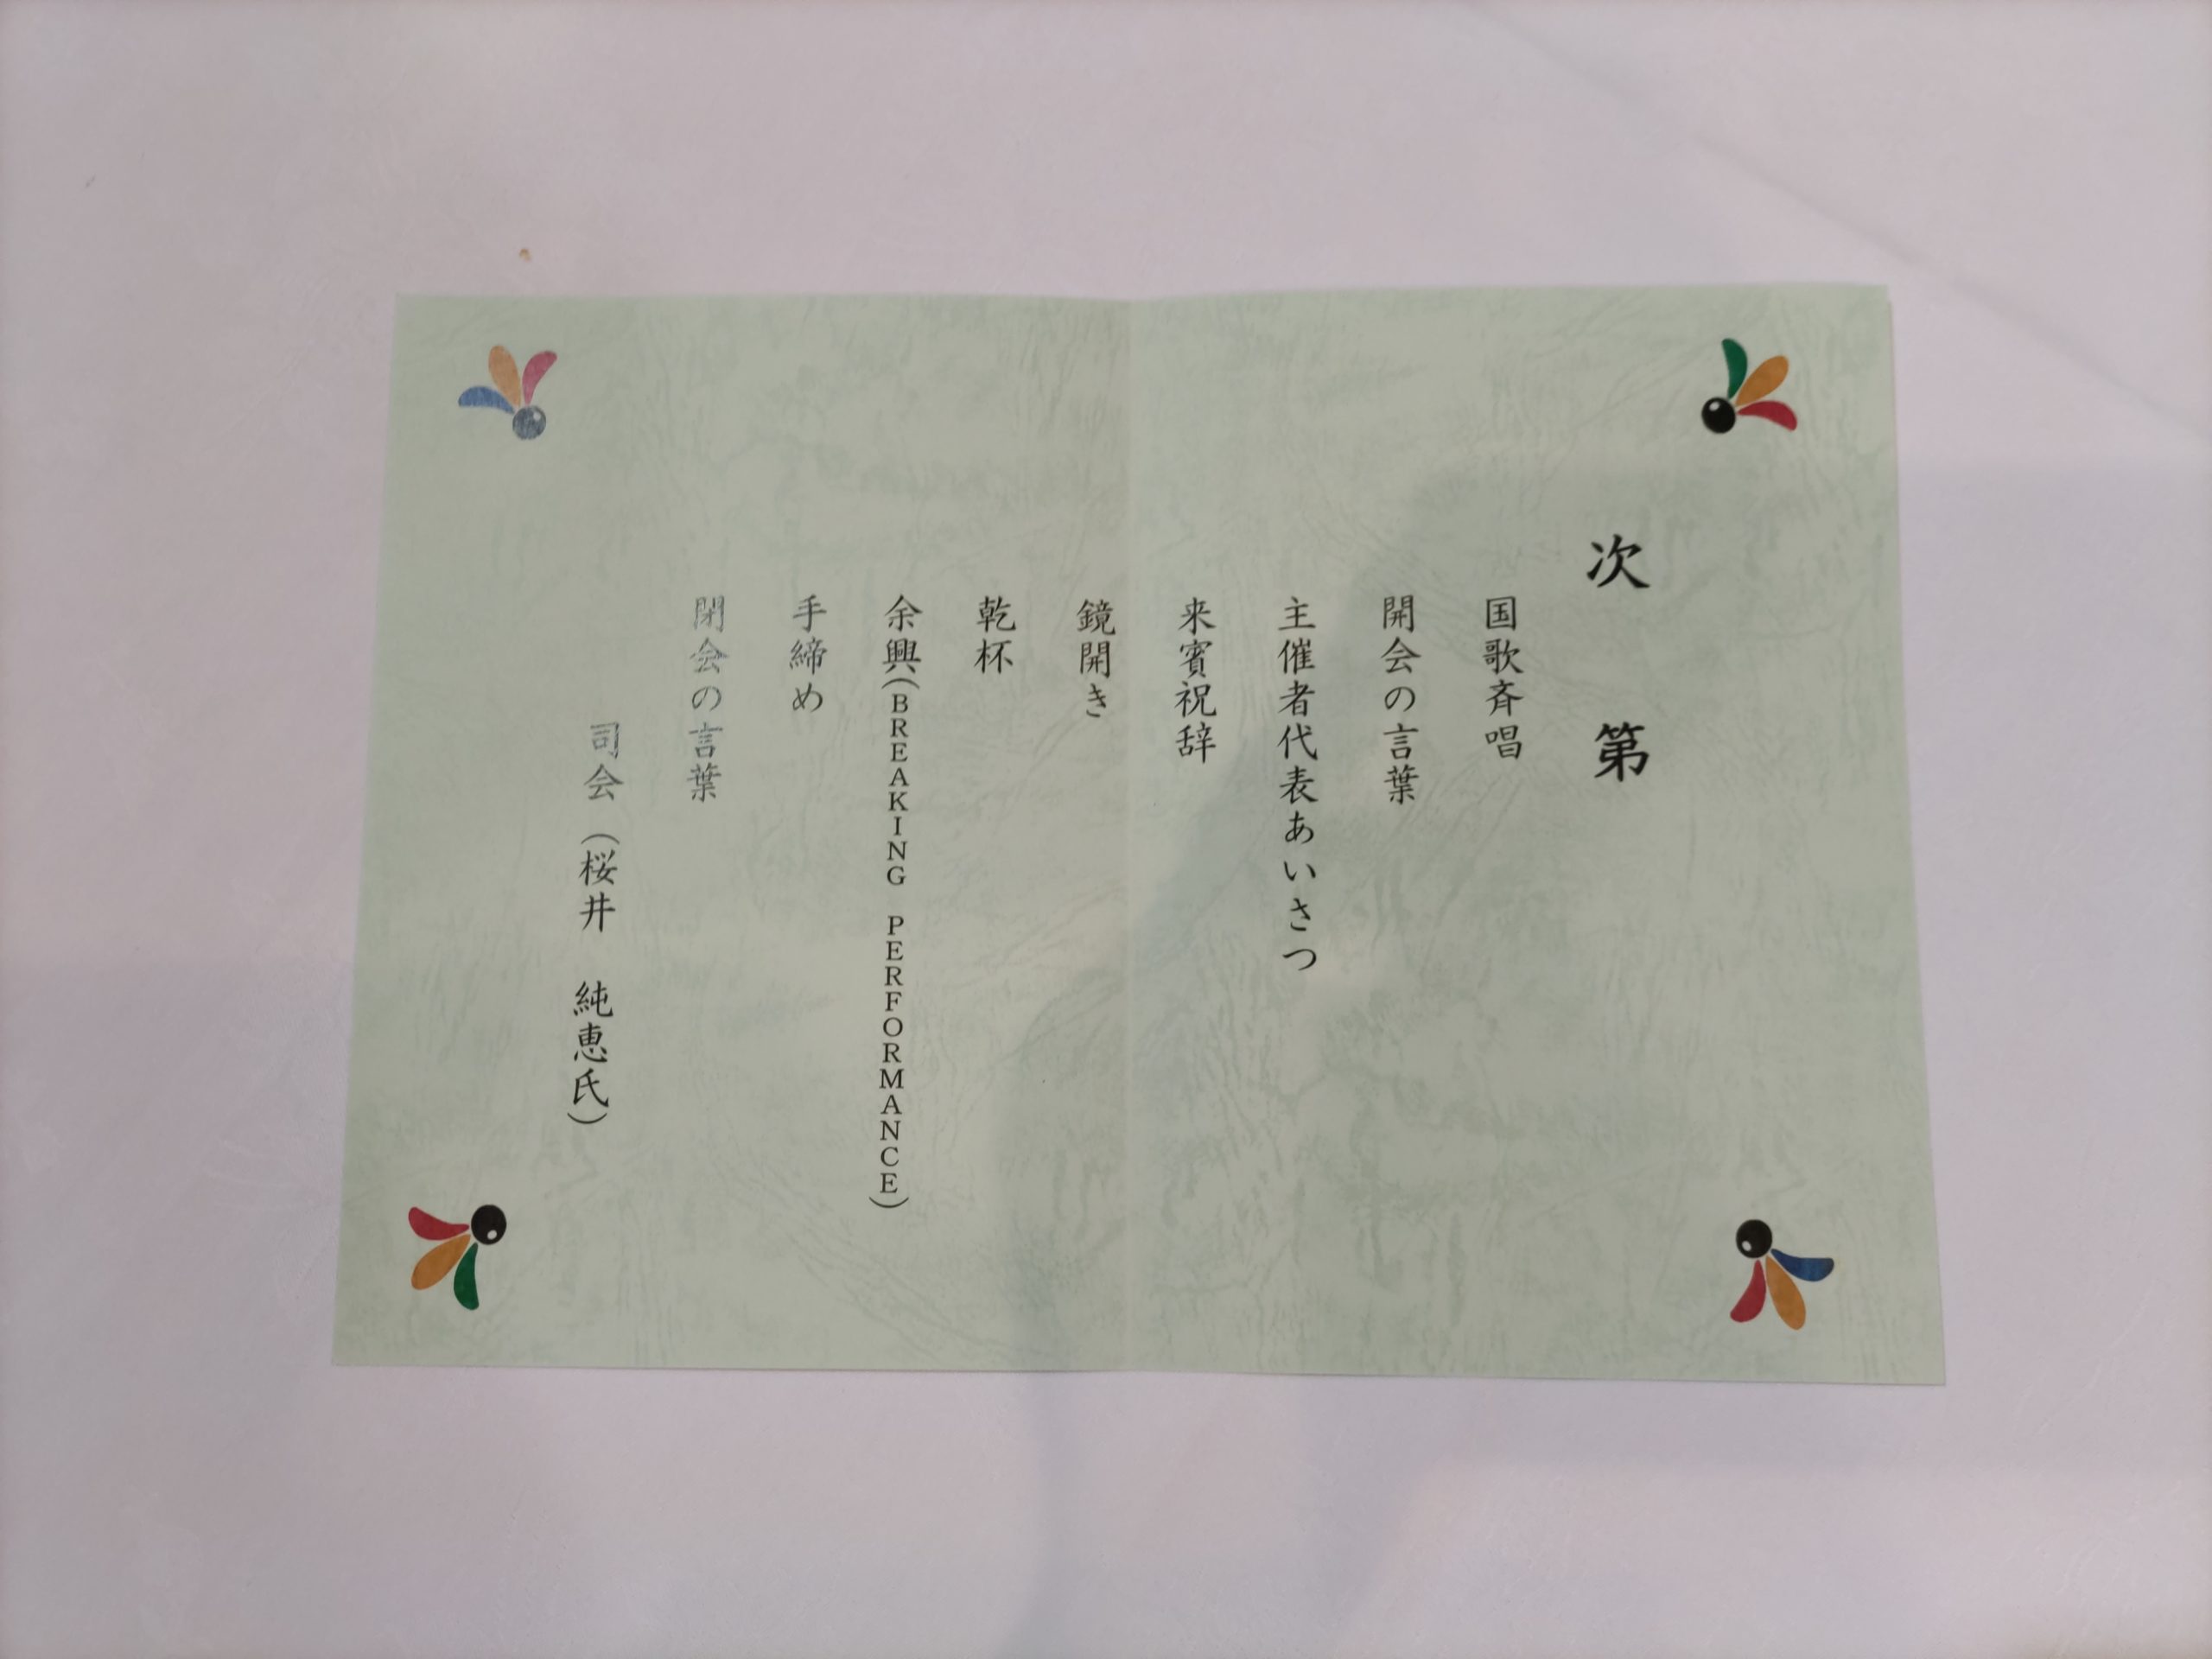 次　第
国歌斉唱
開会の言葉
主催者代表あいさつ
来賓祝辞
鏡開き
乾杯
余興（BREAKING　PERFORMANCE）
手締め
閉会の言葉
司会（桜井　純恵氏）